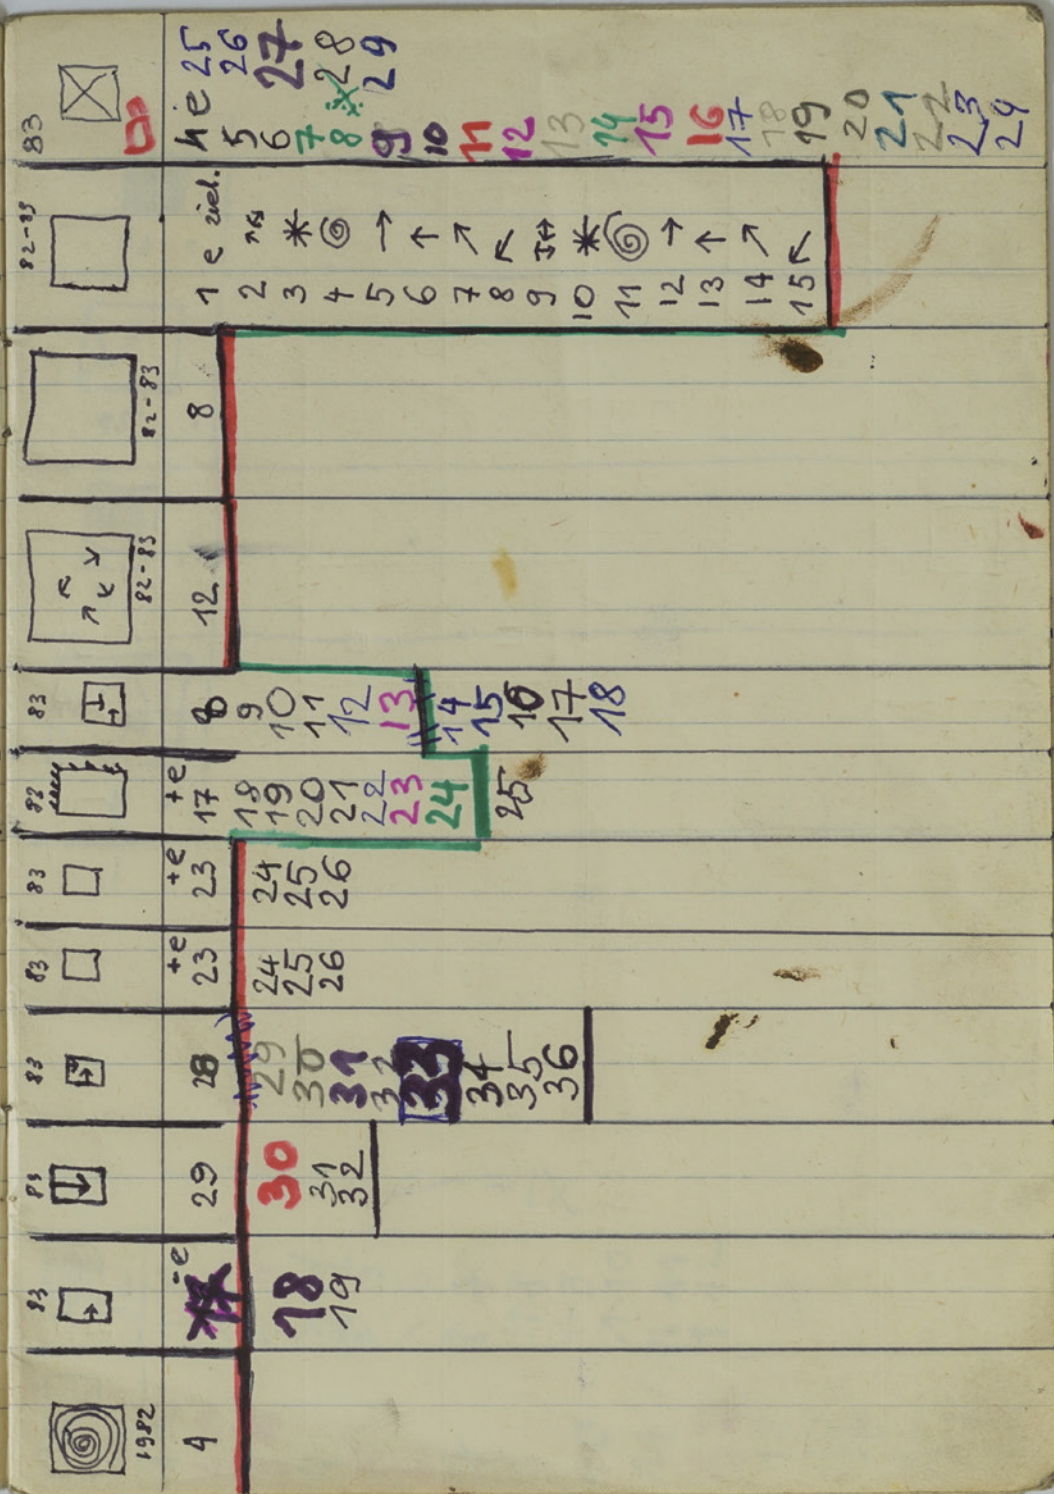 1982
4
83
17 -e
18
19
83
29
30
31
32
83
28
29
30
31
32
33
34
35
36
83
+e
23
24
25
26
83
+e
23
24
25
26
82
+e
17
18
19
20
21
22
23
24
25
83
8
9
10
11
12
13
14
15
16
17
18
82-83
12
82-83
8
82-83
1 e ziel.
2
3
4
5 →
6 ↑
7 ↗
8 ↖
9
10
11
12 →
13 ↑
14 ↗
15 ↖
83
4 e 25
5 26
6 27
7
8 28
9 29
10
11
12
13
14
15
16
17
18
19
20
21
22
23
24